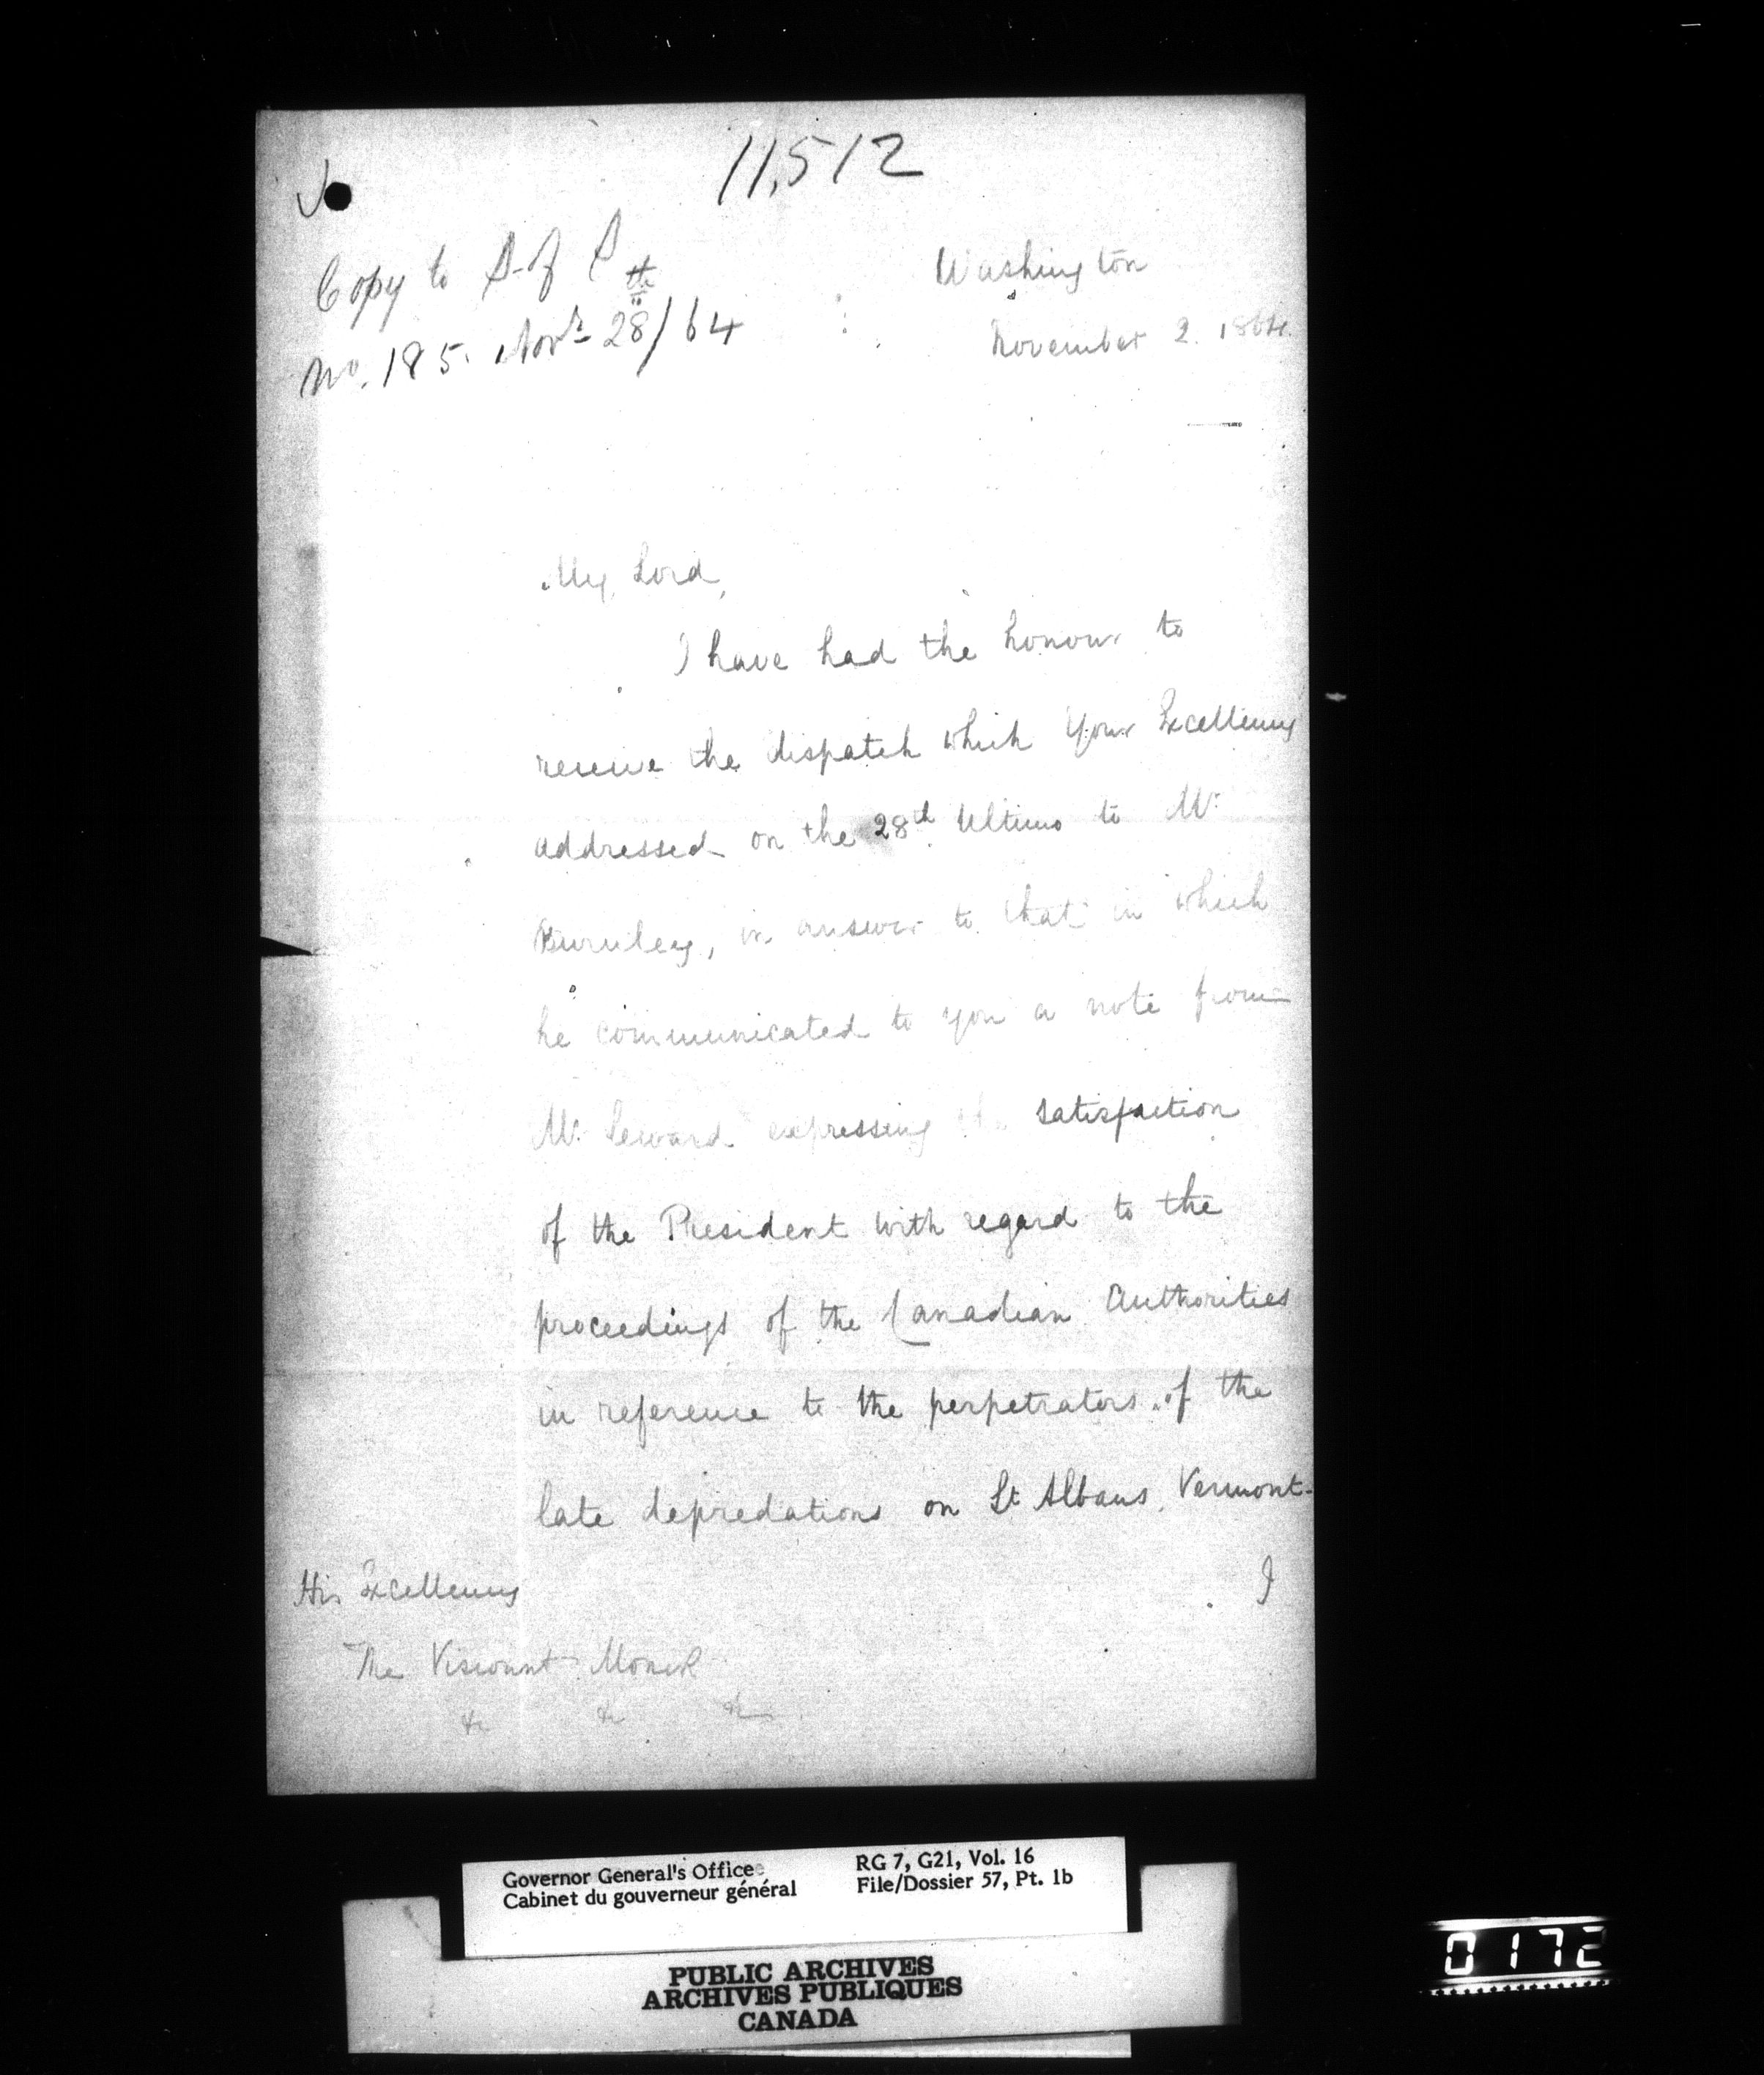 11,512
Copy to S. of S.
No. 185. Novr 28th/64
Washington
November 2. 1864.
My Lord,
I have had the honour to
receive the dispatch which Your Excellency
addressed on the 28th Ultimo to Mr
Burnley, in answer to that in which
he communicated to you a note from
Mr Seward expressing the satisfaction
of the President with regard to the
proceedings of the Canadian Authorities
in reference to the perpetrators of the
late depredations on St Albans, Vermont.
I
His Excellency
The Viscount Monck
&c &c &c
Governor General's Office
Cabinet du gouverneur général
RG 7, G21, Vol. 16
File/Dossier 57, Pt. 1b
PUBLIC ARCHIVES
ARCHIVES PUBLIQUES
CANADA
0172